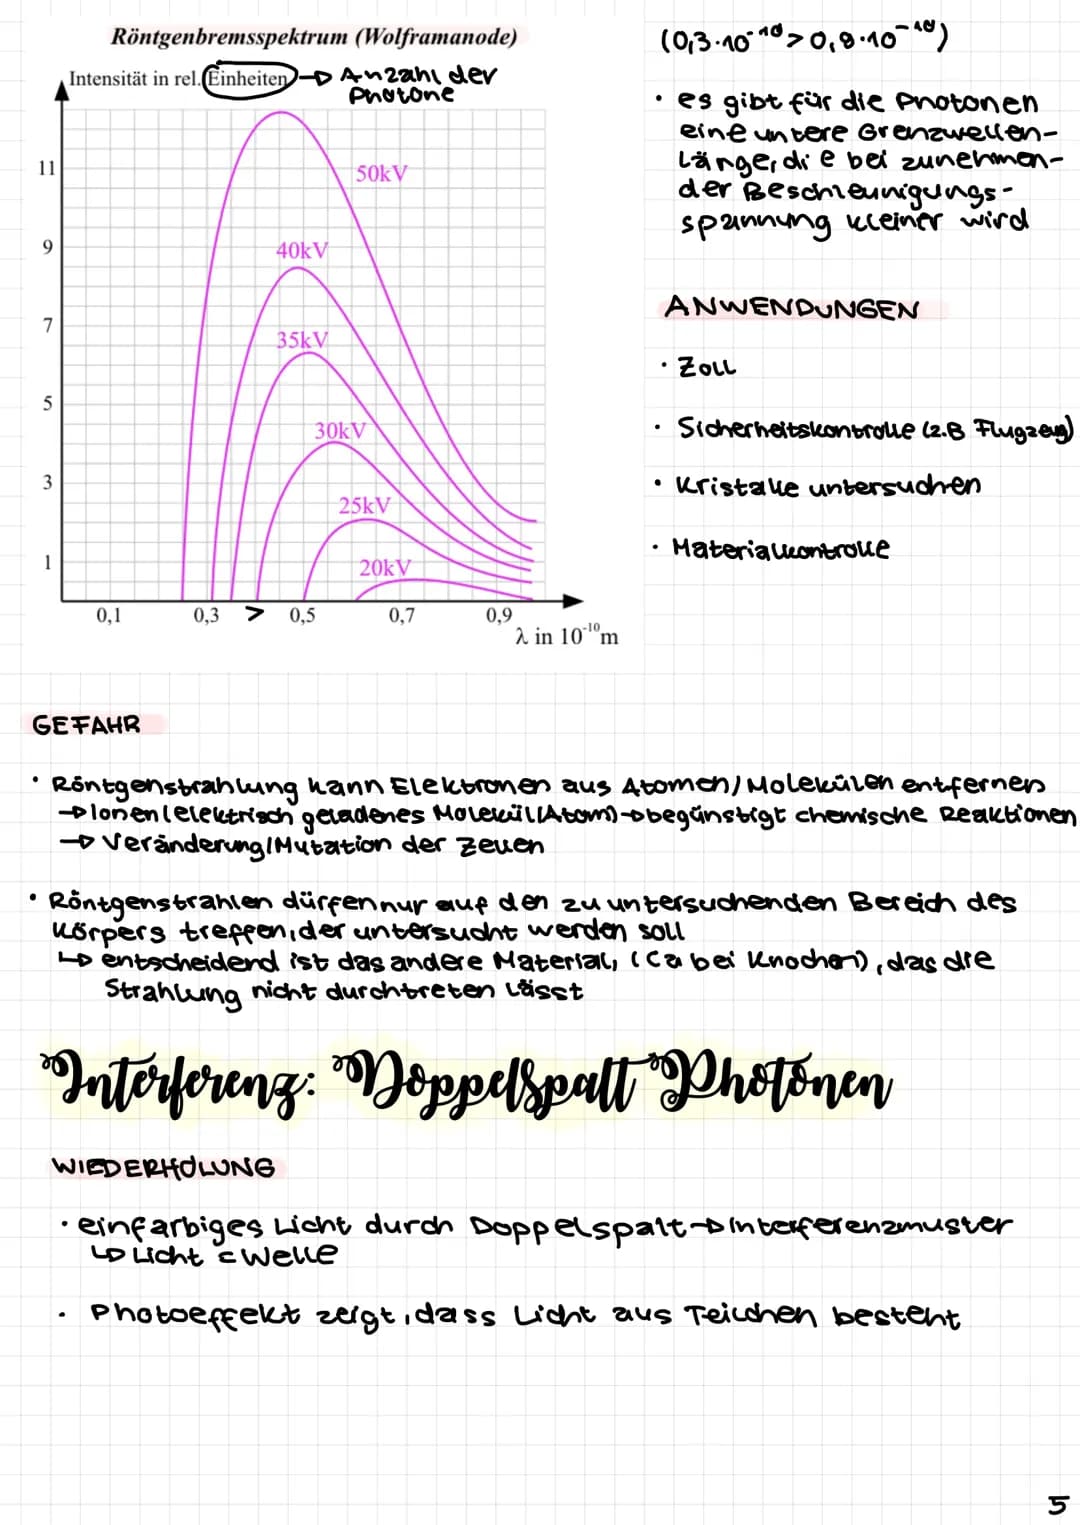 Röntgenbremsspektrum (Wolframanode)
Intensität in rel. Einheiten → Anzahl der
Photone
11
9
7
5
3
1
50kV
40kV
35kV
30kV
25kV
20kV
0,1 0,3 > 0,5 0,7 0,9
λ in 10⁻¹⁰m
(0,3·10⁻¹⁰ > 0,8·10⁻¹⁰)
• es gibt für die Photonen
eine untere Grenzwellen-
länge, die bei zunehmen-
der Beschleunigungs-
spannung kleiner wird
ANWENDUNGEN
• Zoll
• Sicherheitskontrolle (z.B Flugzeug)
• Kristalle untersuchen
• Materialkontrolle
GEFAHR
• Röntgenstrahlung kann Elektronen aus Atomen/Molekülen entfernen
→ Ionen (elektrisch geladenes Molekül(Atom) → begünstigt chemische Reaktionen
→ Veränderung/Mutation der Zellen
• Röntgenstrahlen dürfen nur auf den zu untersuchenden Bereich des
Körpers treffen, der untersucht werden soll
↳ entscheidend ist das andere Material, (Ca bei Knochen), das die
Strahlung nicht durchtreten lässt
Interferenz: Doppelspalt Photonen
WIEDERHOLUNG
• einfarbiges Licht durch Doppelspalt → Interferenzmuster
↳ Licht = Welle
• Photoeffekt zeigt, dass Licht aus Teilchen besteht
5